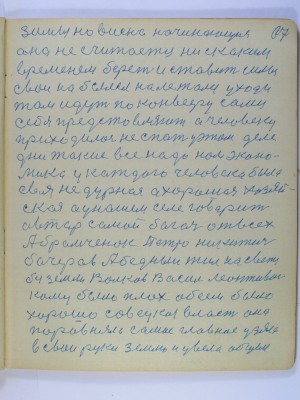 87
зимы но висно начинающия
она не считается ни скаким
временем берет и ставит силы
свои на былел налетали уходи
там идут по конвееру сами
себя предстовляит а человеку
приходилоя не спат утом деле
дни такие все надо нам эконо-
мика у каждого человека была
своя не дурная а хорошая хозяй-
ская а унашем селе говарит
автар самой багат отвсех
Абрамченок Петро
батрав А бедный жил на свету
без земли Волков Васил
кому было плох а
хорошо совецкая власт она
поровняла самае главное узяла
в свои руки землю и увела общем